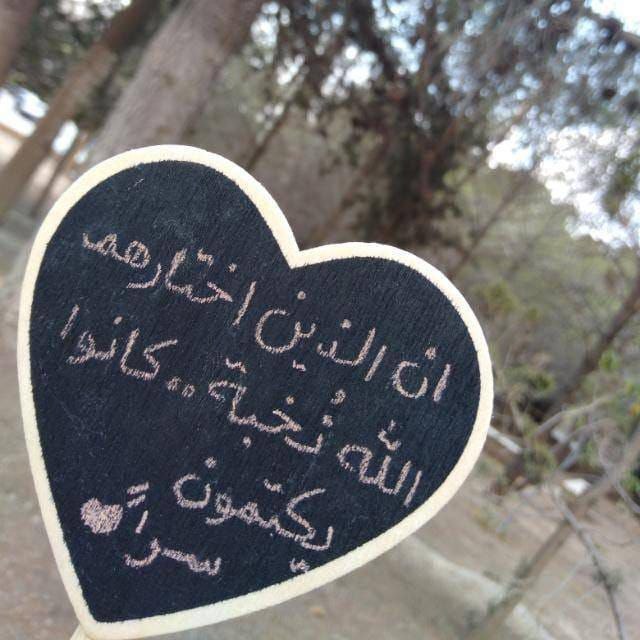 ان الذين اختارهم
الله نُخبة.. كانوا
يكتمون
سراً